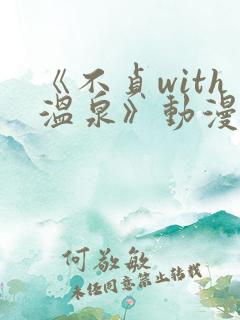 《不貞with
溫泉》動漫
何敬敏
未経同意禁止转载